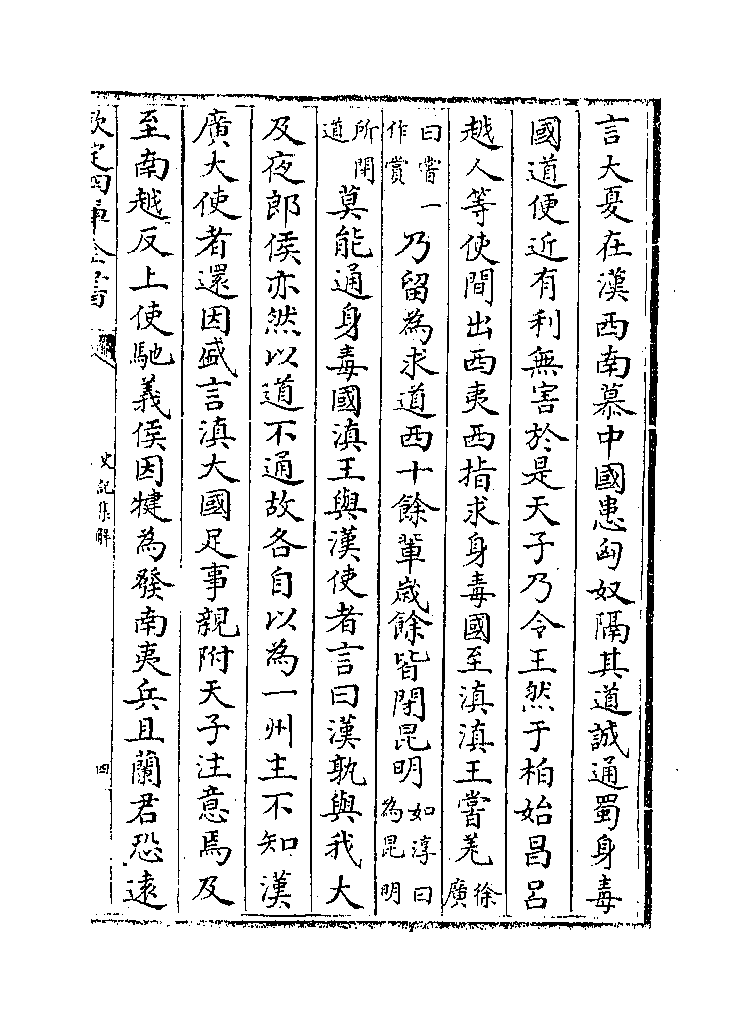 言大夏在漢西南慕中國患匈奴隔其道誠通蜀身毒
國道便近有利無害於是天子乃令王然于柏始昌吕
越人等使間出西夷西指求身毒國至滇滇王嘗羌徐廣
曰嘗一作賞乃留為求道西十餘輩歳餘皆閉昆明如淳曰為昆明
所閉道莫能通身毒國滇王與漢使者言曰漢孰與我大
及夜郎侯亦然以道不通故各自以為一州主不知漢
廣大使者還因盛言滇大國足事親附天子注意焉及
至南越反上使馳義侯因犍為發南夷兵且蘭君恐逺
欽定四庫全書
史記集解
四